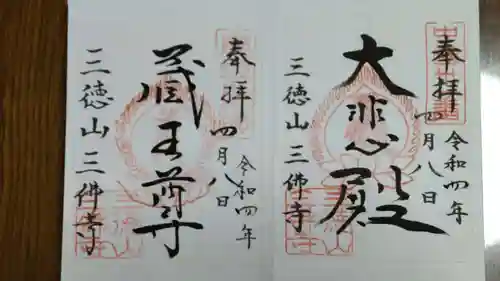 奉拝
令和四年
四月八日
大悲殿
三徳山三佛寺
奉拝
令和四年
四月八日
蔵王尊
三徳山三佛寺